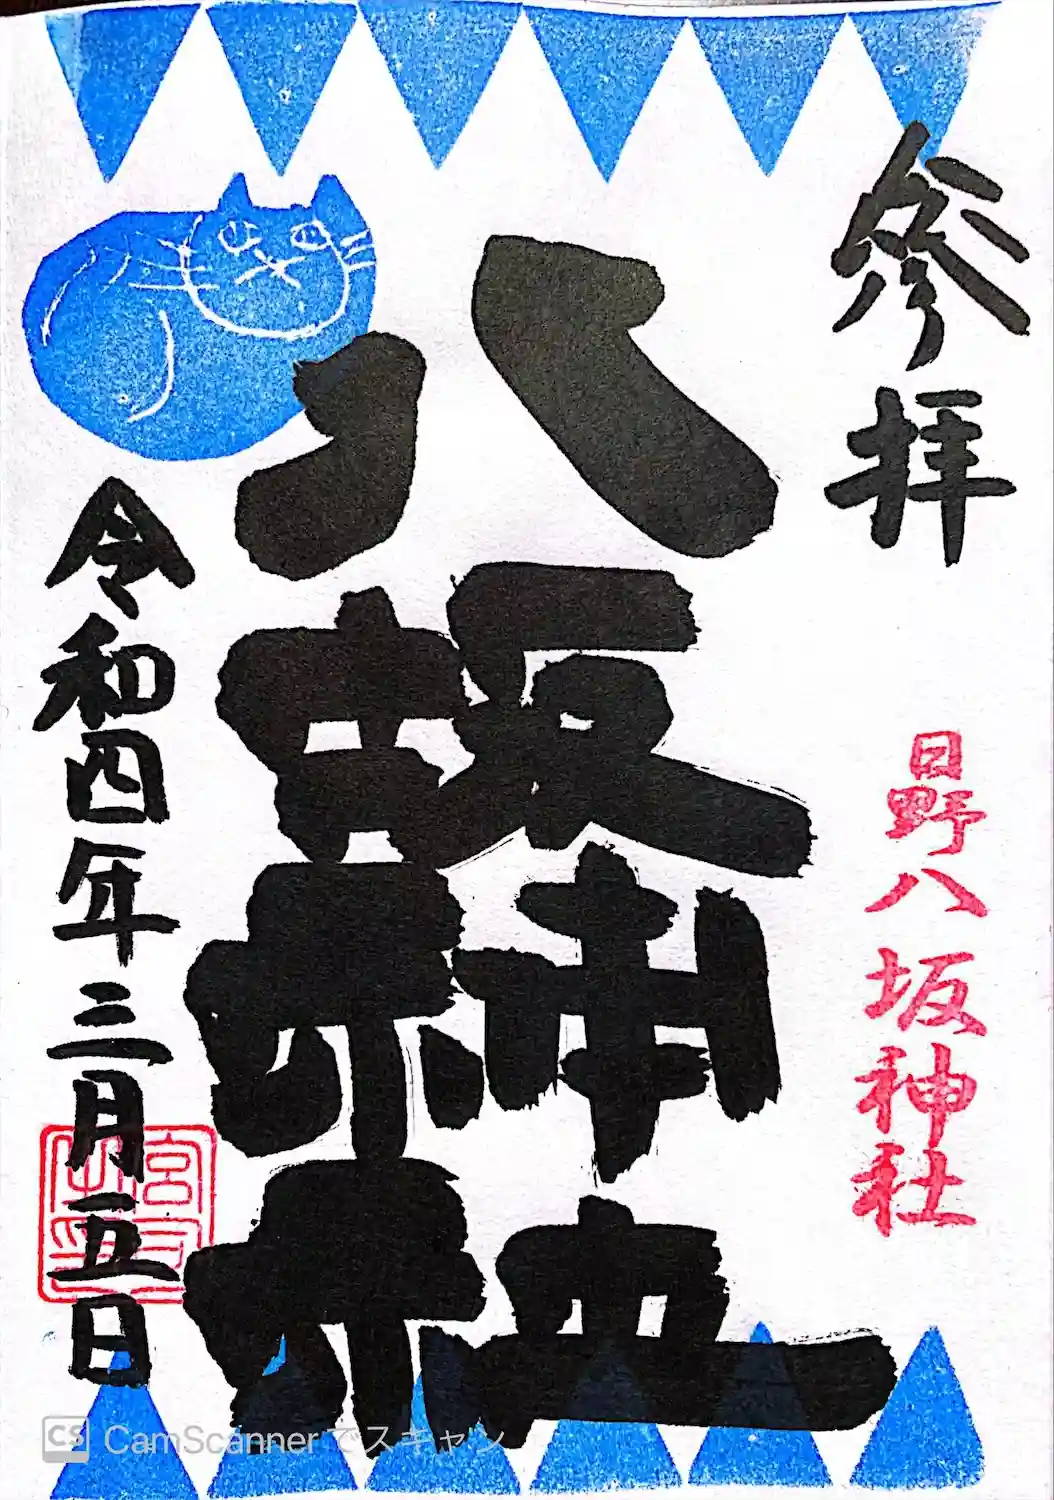 参拝
日野八坂神社
八坂神社
令和四年三月五日
宮司之印
CS CamScannerでスキャン